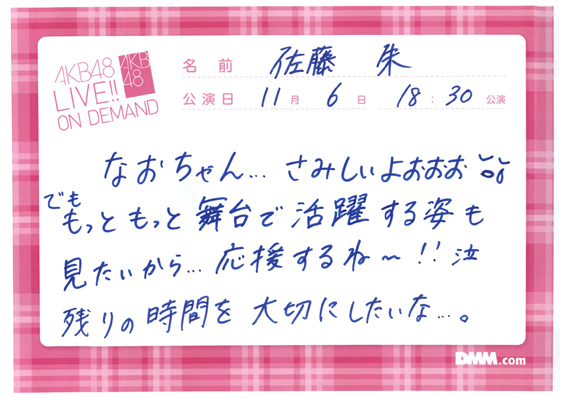 AKB48
LIVE!!
ON DEMAND
AKB
48
名前 佐藤 朱
公演日 11月 6日 18:30 公演
なおちゃん… さみしいよおおお
でも
もっともっと舞台で活躍する姿も
見たいから… 応援するね〜!! 泣
残りの時間を 大切にしたいな…。
DMM.com